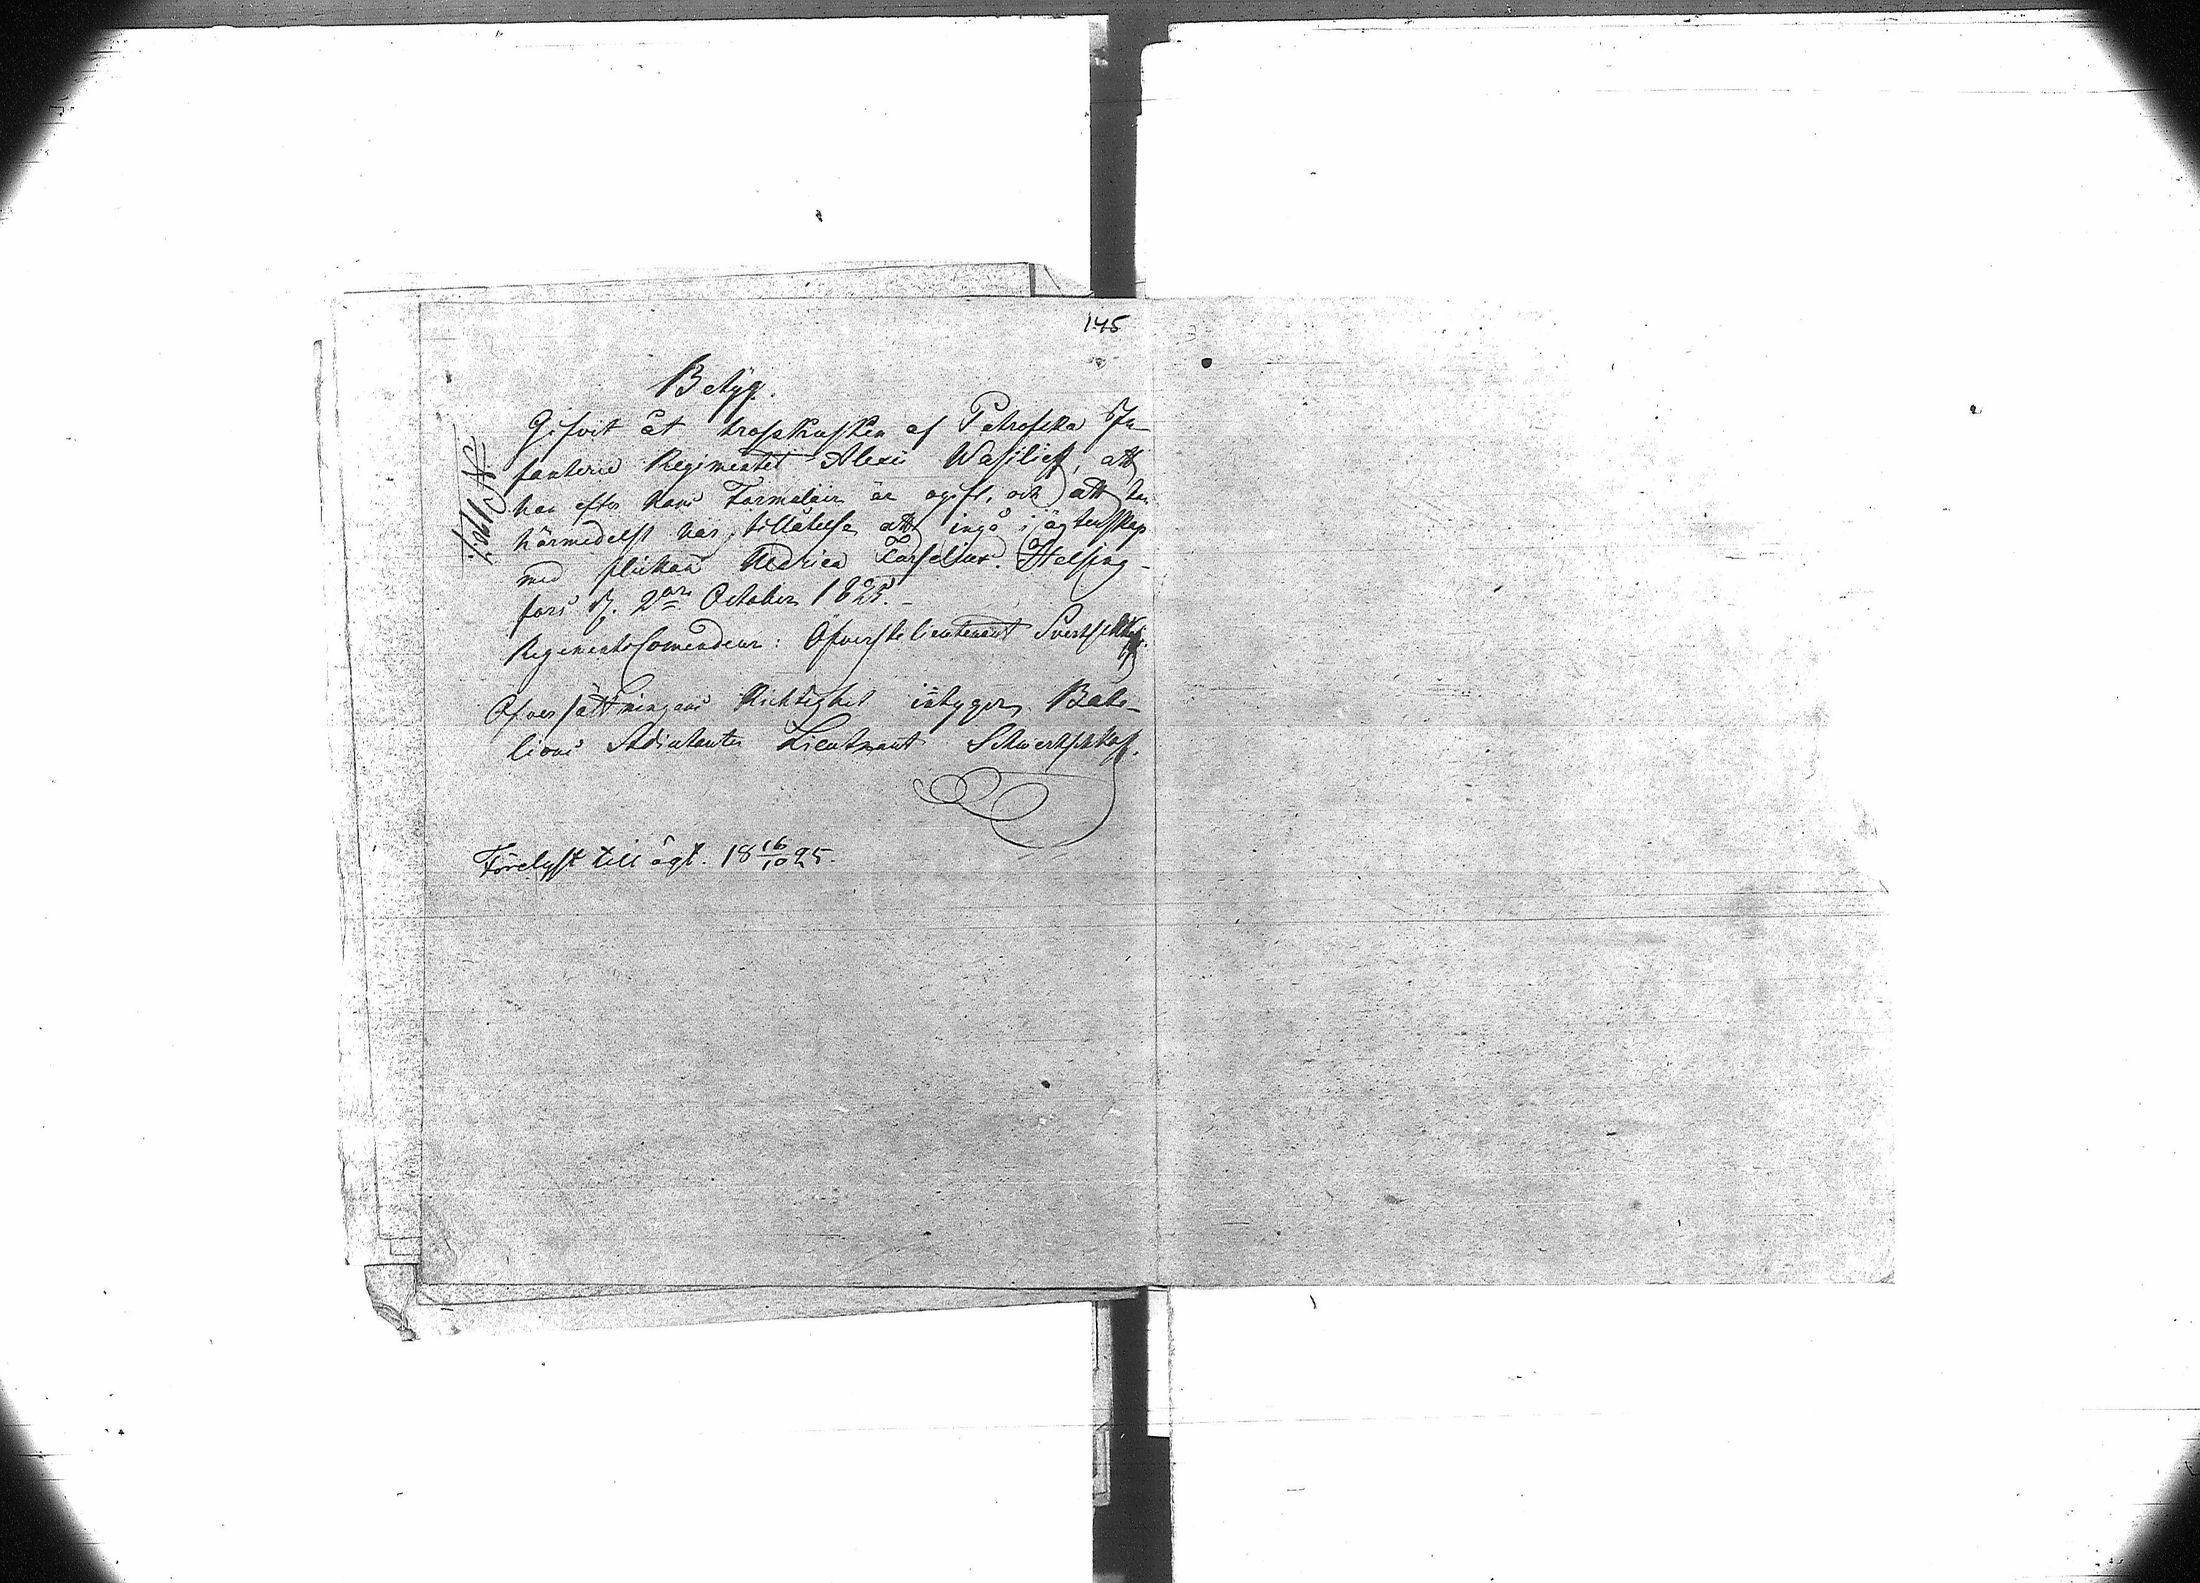 145
Betyg.
Gifvit åt trosskusken af Petrofska In-
fanterie Regimentet Alexei Wasilieff, att
han efter hans Formulair är ogift, och att han
härmedelst har tillåtelse att ingå i ägtenskap
med flickan Ulrica Forselius. Helsing-
fors d. 2dra October 1825.-
Regements Comendeur: Öfverste lieutenant
Öfversättningens Richtighet intygar, Bata-
lions Adiutanten Lieutnant Schwertschkoff.
Förelyst till ägt. 18 16/10 25.